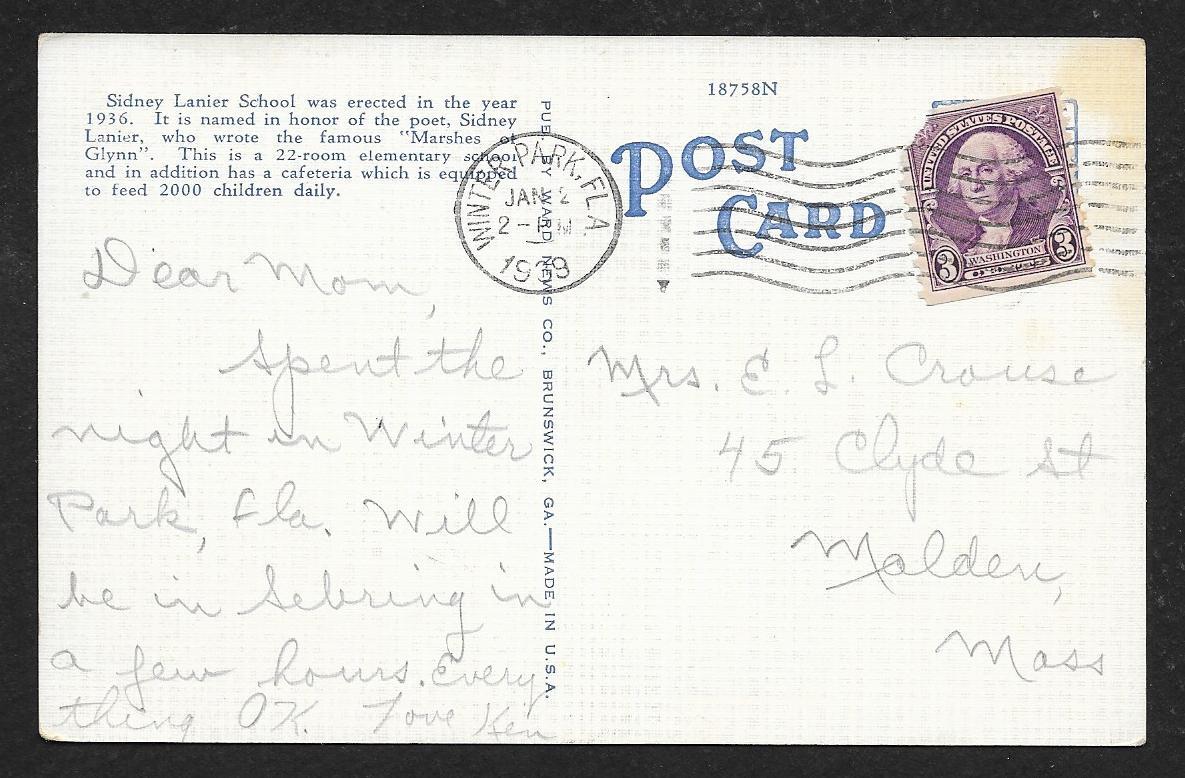 Sidney Lanier School was erected in the year
1936. It is named in honor of the poet, Sidney
Lanier, who wrote the famous "Marshes
Glynn". This is a 22-room elementary school
and in addition has a cafeteria which is equipped
to feed 2000 children daily.
Dear Mom,
Spent the
night in Winter
Park, Fla. Will
be in Sebring in
a few hours. Every
thing OK. Love Ken
PUB. BY WARD NEWS CO., BRUNSWICK, GA.—MADE IN U.S.A.
18758N
POST
CARD
WINTER PARK, FLA.
JAN 2
2 - PM
UNITED STATES POSTAGE
3 WASHINGTON 3
Mrs. E. L. Crouse
45 Clyde St
Malden,
Mass